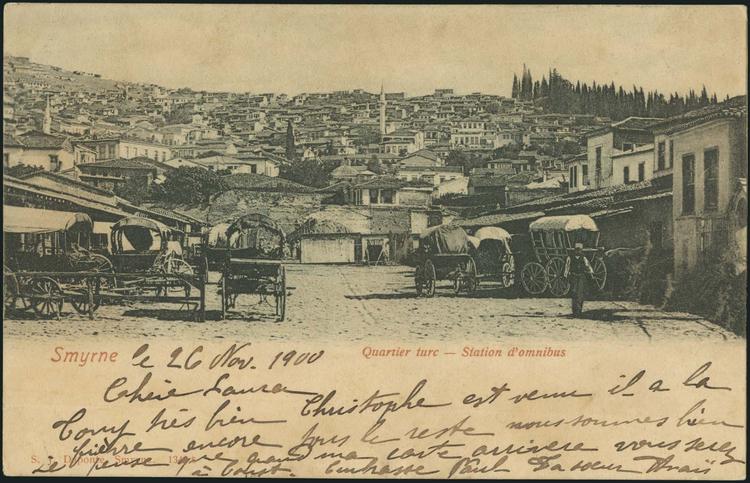 Smyrne le 26 Nov. 1900
Quartier turc — Station d'omnibus
Chère Laura
Christophe est venu il a la
très bien
fièvre encore tous le reste nous sommes bien
je pense que quand ma carte arrivera vous serez
à Const. Embrasse Paul Ta soeur